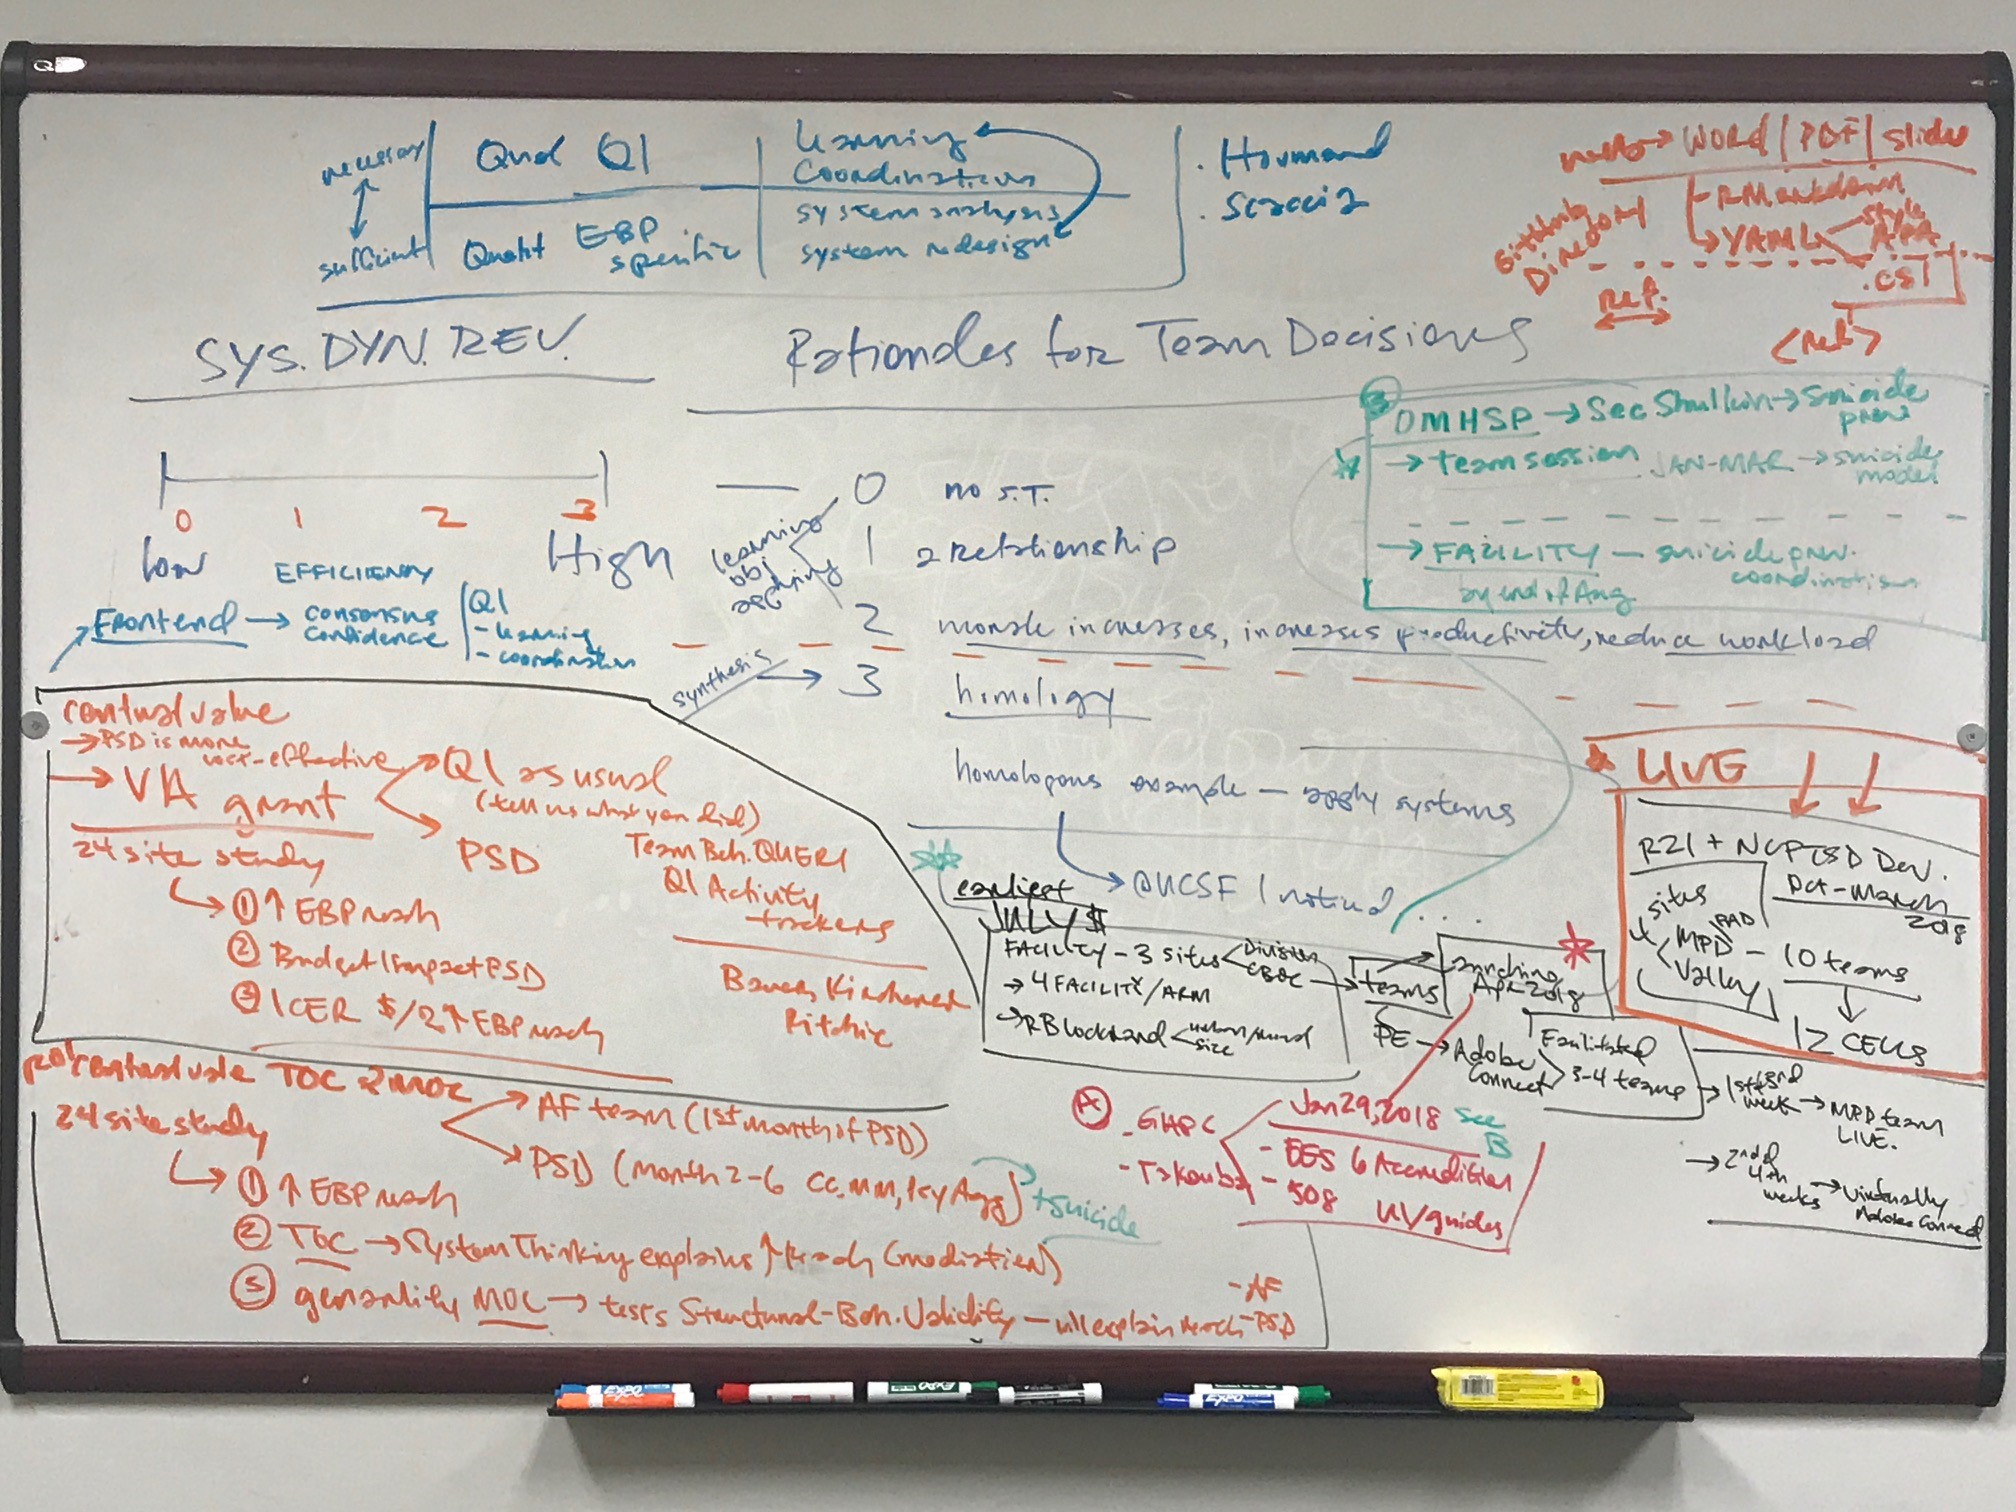 necessary
sufficient
Qual QI
Quant EBP
specific
learning
Coordination
system analysis
system redesign
. Hovmand
. Scaccia
WORD | PDF | slides
RMarkdown
YAML
style
APA
.csl
GitHub
Directory
Ref.
<Ref>
SYS. DYN. REV.
Rationales for Team Decisions
0 1 2 3
low EFFICIENCY High
Frontend → consensus
confidence
QI
- learning
- coordination
learning
obj
0 no S.T.
1 a relationship
2 morale increases, increases productivity, reduce workload
synthesis → 3 homology
homologous example — apply systems
→ @UCSF I noticed ....
B
OMHSP → Sec Shulkin → Suicide
prev
→ team session JAN-MAR → suicide
model
→ FACILITY — suicide prev.
coordination
by end of Aug.
central value
→ PSD is more
cost-effective
→ VA grant
QI as usual
(tell us what you did)
PSD
24 site study
① ↑ EBP reach
② Budget Impact PSD
③ ICER $/2↑ EBP reach
Team Beh. QUERI
QI Activity
trackers
Bauer, Kirchner
Ritchie
central value TOC & MOC
24 site study
AF team (1st month of PSD)
PSD (month 2-6 CC, MM, Psy Agg) + Suicide
① ↑ EBP reach
② TOC → System Thinking explains ↑ reach (mediation)
③ generality MOC → tests Structural-Beh. Validity — will explain reach
- AF
- PSD
earliest
JULY $
FACILITY - 3 sites
Division
CBOC
→ teams
→ 4 FACILITY/ARM
→ RB block rand
urban/rural
size
launching
Apr 2018
PE → Adobe
Connect
Facilitated
3-4 teams
→ 1st + 3rd
week → MPD team
LIVE.
→ 2nd &
4th
weeks → Virtually
Adobe Connect
A
- GHPC
- Takouba
Jan 29, 2018 see
B
- EES 6 Accreditation
- 508 UI/guides
LIVE
R21 + NCPTSD Dev.
Oct - March
2018
sites
MPD
PAD
Valley
- 10 teams
12 CELLS
EXPO
EXPO